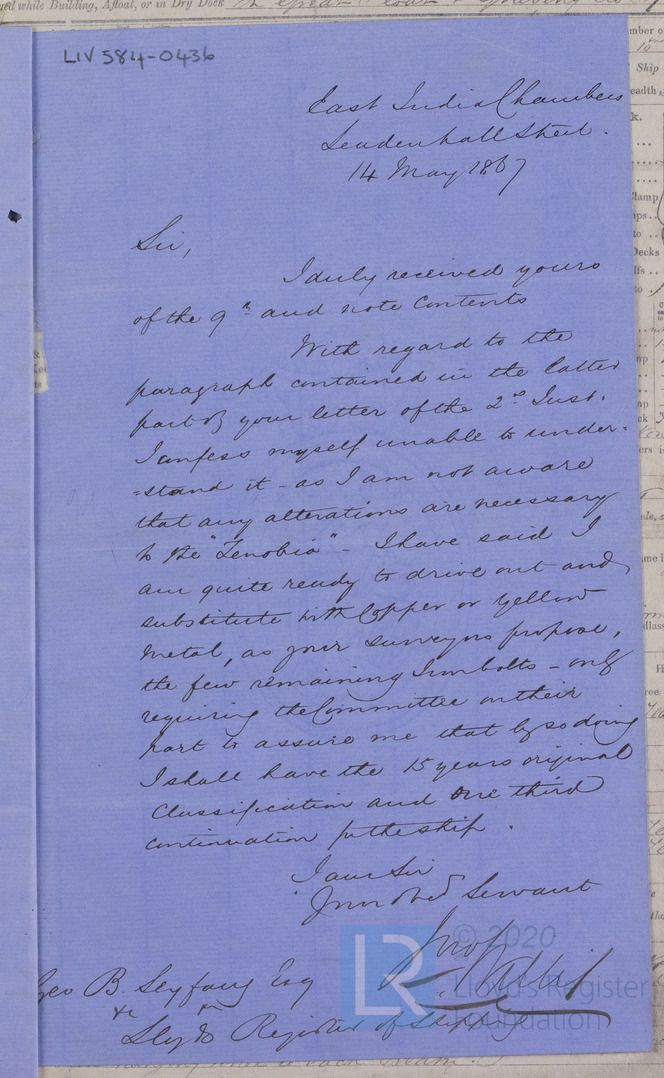 ued while Building, Afloat, or in Dry Dock
LIV 584-0436
East India Chambers
Leadenhall Street.
14 May 1867
Sir,
I duly received yours
of the 9th and note contents
With regard to the
paragraph contained in the latter
part of your letter of the 2nd Inst.
I confess myself unable to under-
=stand it - as I am not aware
that any alterations are necessary
to the "Zenobia" - I have said I
am quite ready to drive out and
substitute with Copper or yellow
metal, as your surveyors propose,
the few remaining Iron bolts - only
requiring the Committee on their
part to assure me that by so doing
I shall have the 15 years original
Classification and one third
continuation for the ship.
I am Sir
Your Obed Servant
Jno
Geo B. Seyfang Esq
&c
Lloyds Register of Shipping
LR
© 2020
Lloyd's Register
Foundation
mber o
Ship
eadth
k.
Clamp
Decks